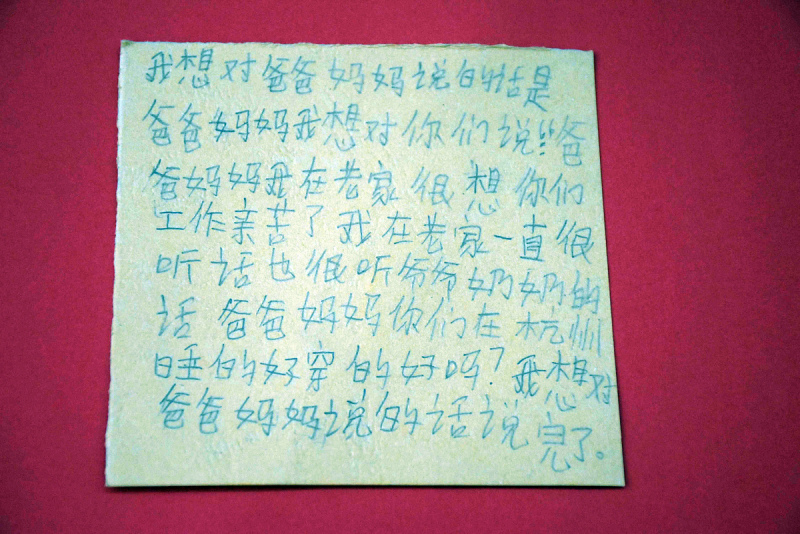 我想对爸爸妈妈说的话是
爸爸妈妈我想对你们说!!爸
爸妈妈我在老家很想你们
工作亲苦了我在老家一直很
听话也很听爷爷奶奶的
话爸爸妈妈你们在杭州
睡的好穿的好吗?我想对
爸爸妈妈说的话说完了。